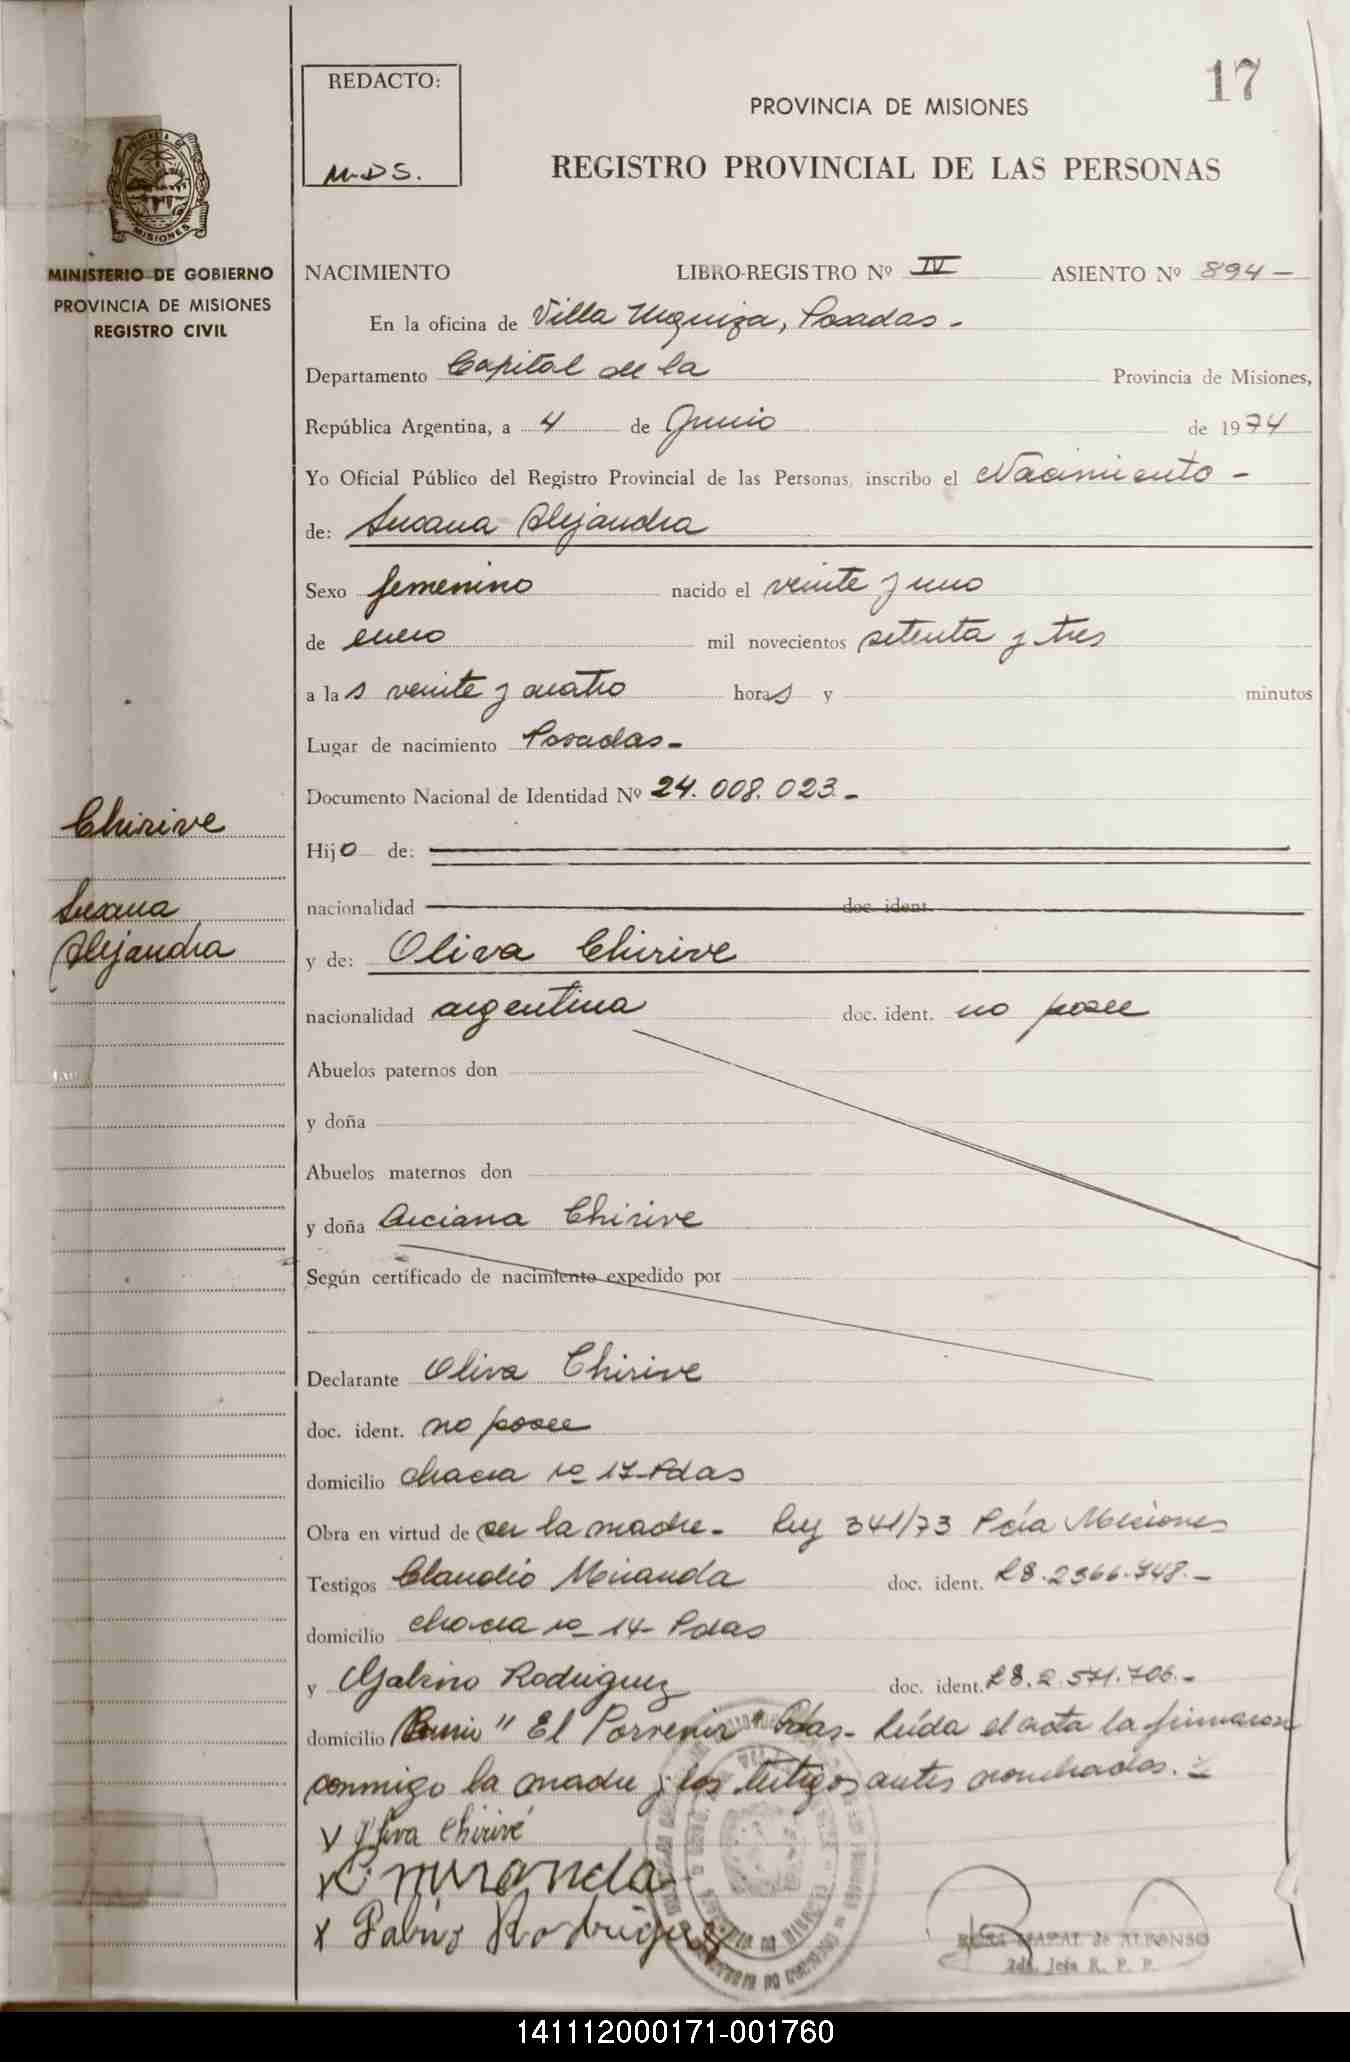 17
REDACTO:
M.D.S.
PROVINCIA DE MISIONES
REGISTRO PROVINCIAL DE LAS PERSONAS
MISIONES
MINISTERIO DE GOBIERNO
PROVINCIA DE MISIONES
REGISTRO CIVIL
NACIMIENTO LIBRO-REGISTRO Nº IV ASIENTO Nº 894-
En la oficina de Villa Urquiza, Posadas.-
Departamento Capital de la Provincia de Misiones,
República Argentina, a 4 de Junio de 1974
Yo Oficial Público del Registro Provincial de las Personas, inscribo el Nacimiento -
de: Susana Alejandra
Sexo femenino nacido el veinte y uno
de enero mil novecientos setenta y tres
a las veinte y cuatro horas y minutos
Lugar de nacimiento Posadas.-
Documento Nacional de Identidad Nº 24.008.023.-
Chirive
Hijo de:
Susana
nacionalidad doc ident.
Alejandra
y de: Oliva Chirive
nacionalidad argentina doc. ident. no posee
Abuelos paternos don
y doña
Abuelos maternos don
y doña Chirive
Según certificado de nacimiento expedido por
Declarante Oliva Chirive
doc. ident. no posee
domicilio chacra nº 17-Pdas
Obra en virtud de ser la madre.- Ley 341/73 Pcia Misiones
Testigos Claudio Miranda doc. ident. L8.2366.748.-
domicilio chacra nº 14- Pdas
y Gabino Rodriguez doc. ident. L8.2.571.706.-
domicilio Barrio "El Porvenir" Pdas- Leída el acta la firmaron
conmigo la madre y los testigos antes nombrados.-
Oliva Chirivé
C. miranda
Rodriguez
ROSA de ALFONSO
Jefa R. P. P.
141112000171-001760